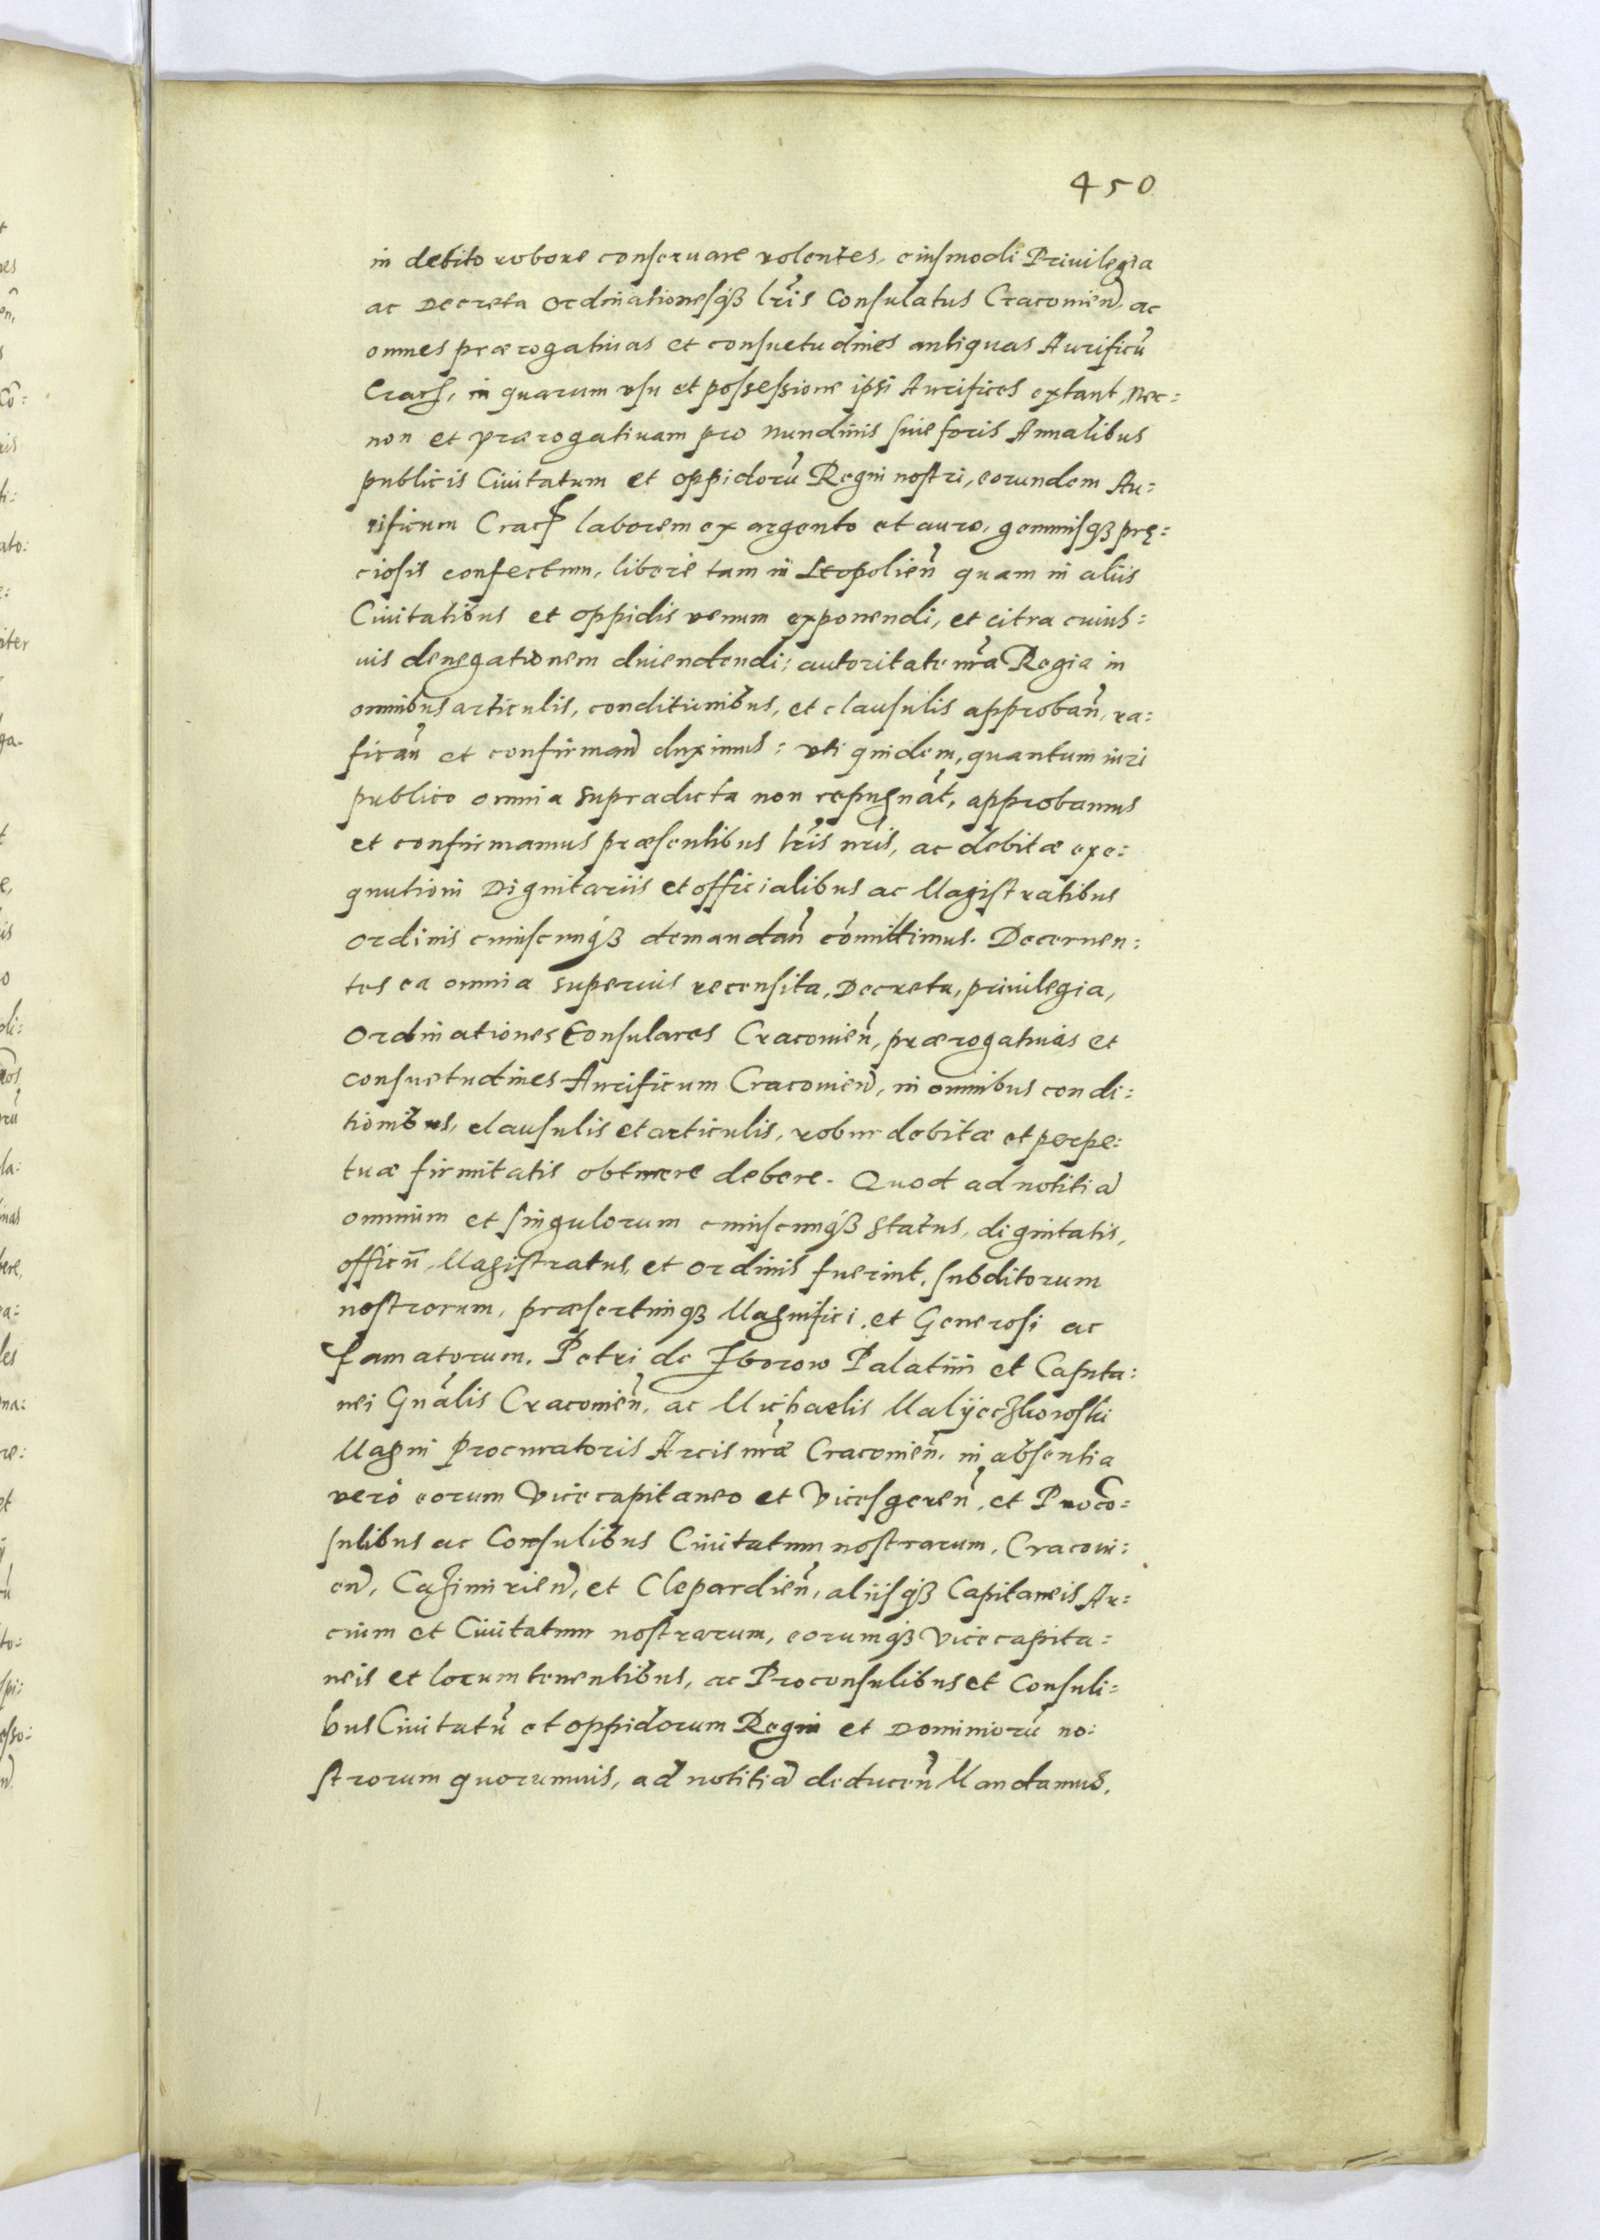 450
in debito robore conseruare volentes, eiusmodi Priuilegia
ac Decreta Ordinationesq3 lr̃is Consulatus Cracouien̄, ac
omnes prærogatiuas et consuetudines antiquas Aurificũ
Crac̄, in quarum vsu et possessione ipsi Aurifices extant, Nec=
non et prærogatiuam pro Nundinis siue foris Annalibus
publicis Ciuitatum et oppidorũ Regni nostri, eorundem Au=
rificum Crac̄ laborem ex argento et auro, gemmisq3 prę=
ciosis confectum, liberè tam in Leopolien̄ quam in aliis
Ciuitatibus et oppidis venum exponendi, et citra cuius=
uis denegationem diuendendi: autoritate nr̃a Regia in
omnibus articulis, conditionibus, et clausulis approban̄, ra=
fican̄ et confirman̄ duximus: vti quidem, quantum iuri
publico omnia supradicta non repugnãt, approbamus
et confirmamus præsentibus lr̃is nr̃is, ac debitæ exe=
qutioni Dignitariis et officialibus ac Magistratibus
ordinis cuiuscunq3 demandan̄ cõmittimus. Decernen=
tes ea omnia superius recensita, Decreta, priuilegia,
Ordinationes Consulares Cracouien̄, prærogatiuas et
consuetudines Aurificum Cracouien̄, in omnibus condi=
tionibus, clausulis et articulis, robur debitæ et perpe=
tuæ firmitatis obtinere debere. Quod ad notitiã
omnium et singulorum cuiuscunq3 status, dignitatis,
officii, Magistratus, et ordinis fuerint, subditorum
nostrorum, præsertimq3 Magnifici, et Generosi ac
famatorum, Petri de Zborow Palatini et Capita=
nei Gñalis Cracouien̄, ac Michaelis Maliyeczkowski
Magni Procuratoris Arcis nr̃æ Cracouien̄, in absentia
verò eorum Vicecapitaneo et Vicesgeren̄, et Procõ=
sulibus ac Consulibus Ciuitatum nostrarum, Cracoui=
en̄, Cazimirien̄, et Clepardien̄, aliisq3 Capitaneis Ar=
cium et Ciuitatum nostrarum, eorumq3 Vicecapita=
neis et locum tenentibus, ac Proconsulibus et Consuli=
bus Ciuitatũ et oppidorum Regni et Dominiorũ no=
strorum quorumuis, ad notitiã deducen̄ Mandamus,